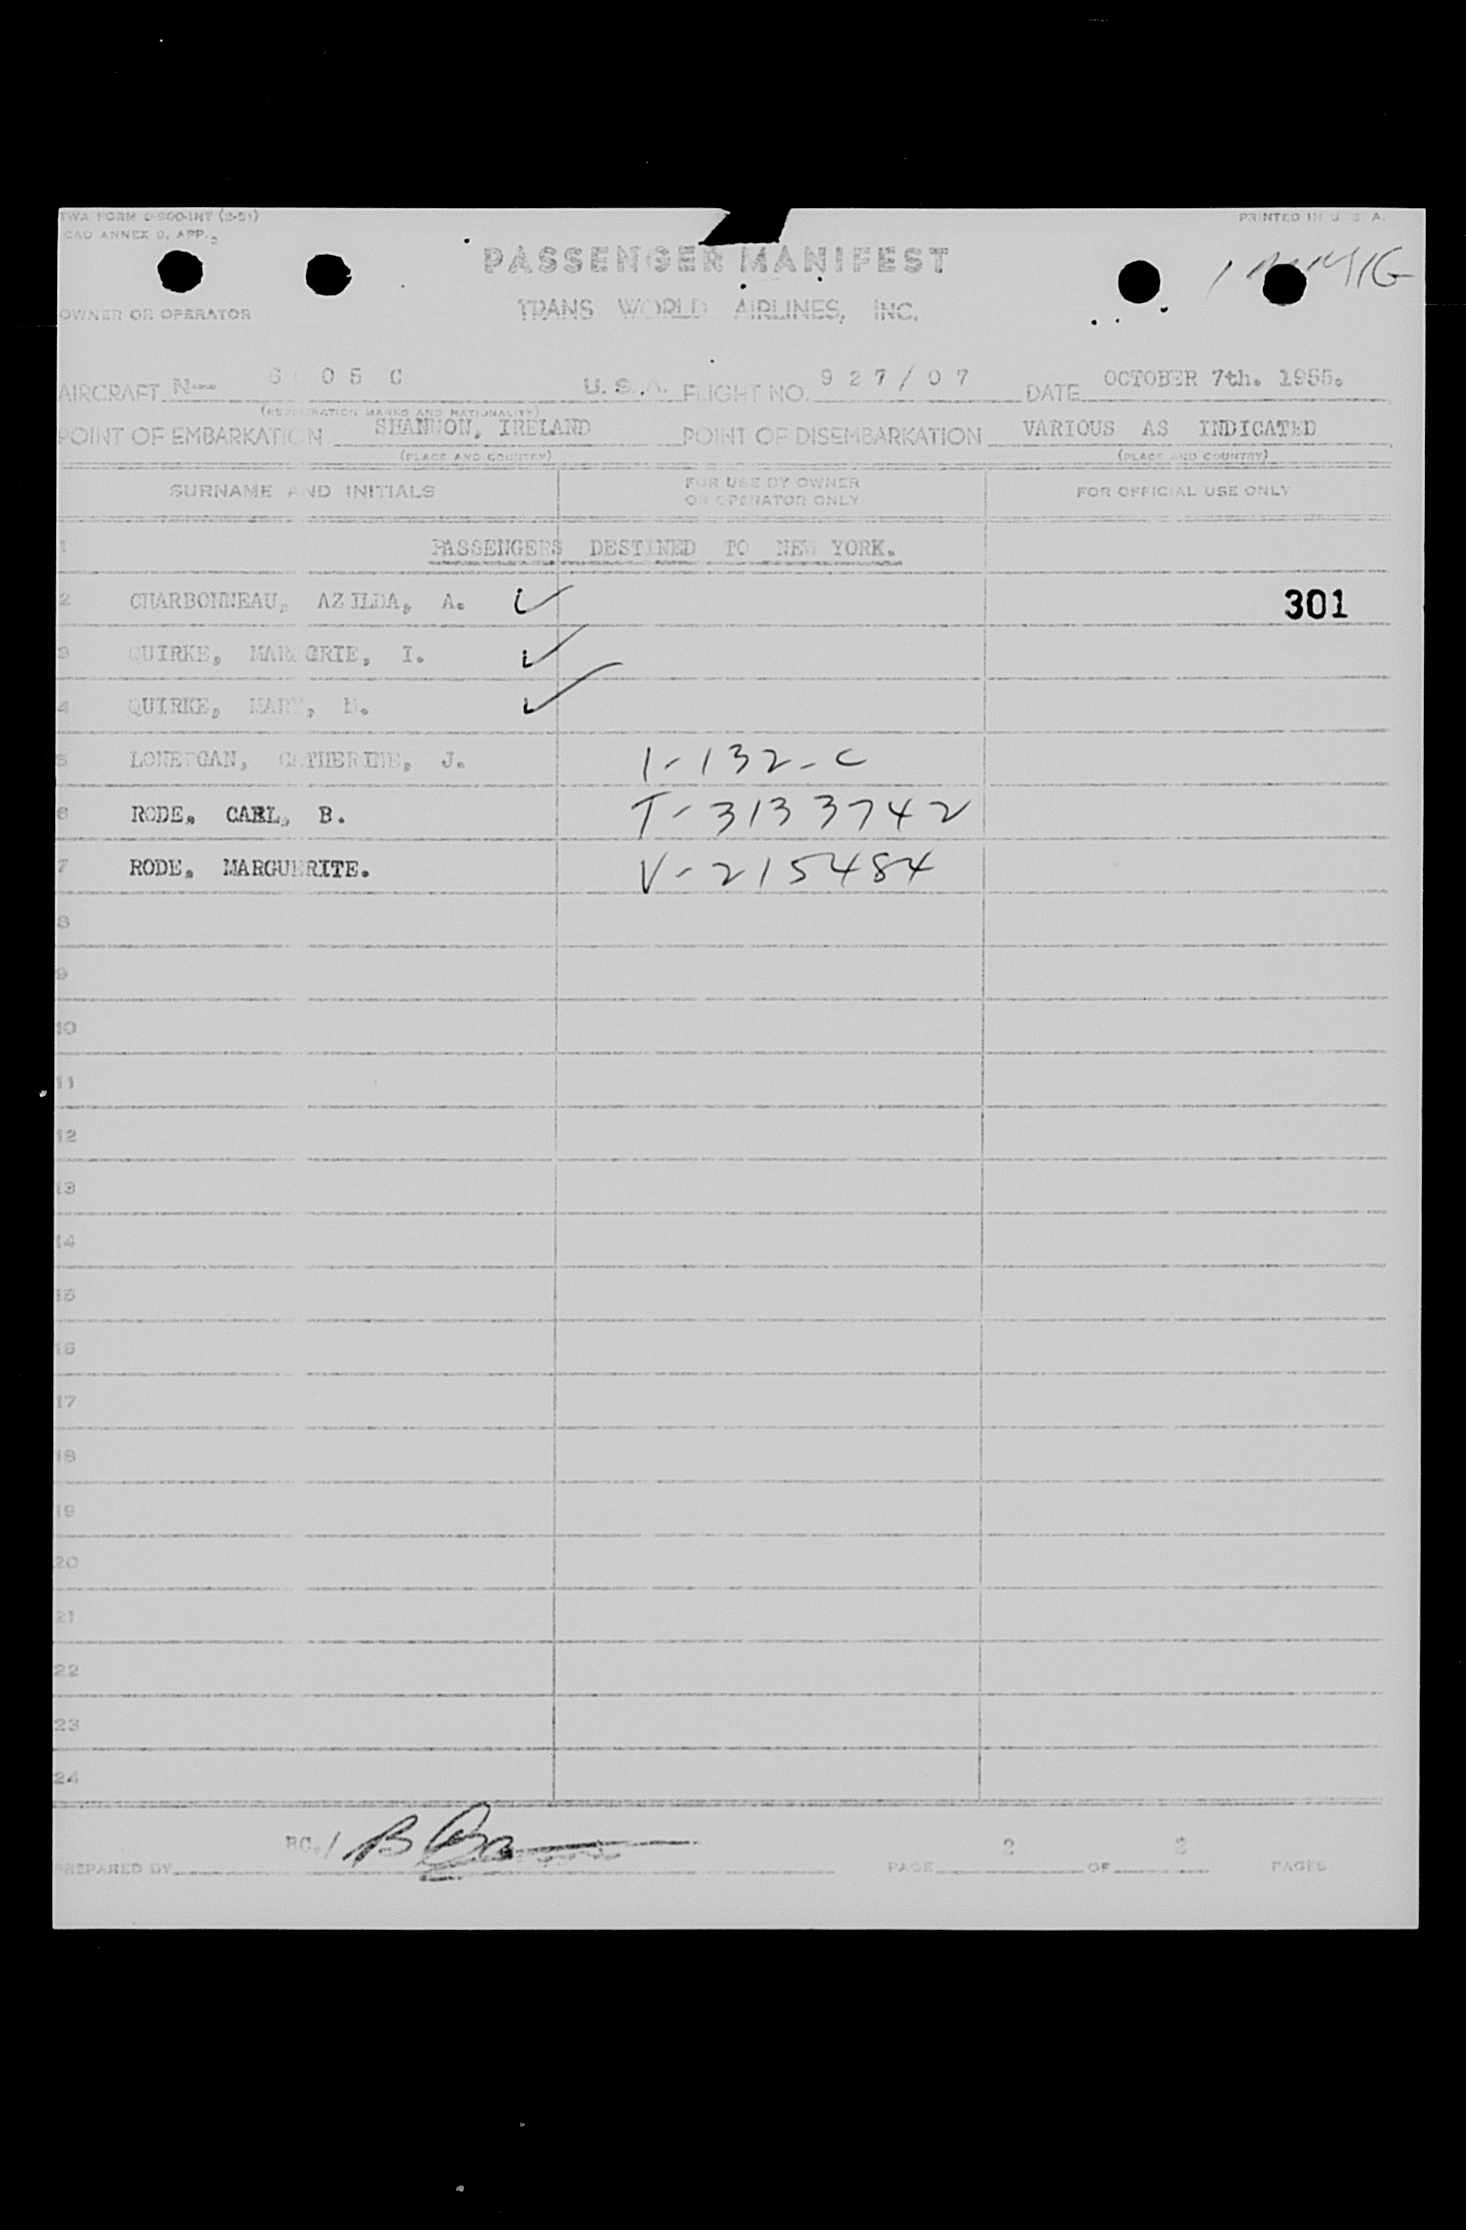 TWA FORM O-900-INT (2-51)
PRINTED IN U. S. A.
ICAO ANNEX 9, APP. 2
PASSENGER MANIFEST
IMMIG
OWNER OR OPERATOR TRANS WORLD AIRLINES, INC.
AIRCRAFT N--- 05 C U.S.A. FLIGHT NO. 927/07 DATE OCTOBER 7th. 1955.
(REGISTRATION MARKS AND NATIONALITY)
POINT OF EMBARKATION SHANNON, IRELAND POINT OF DISEMBARKATION VARIOUS AS INDICATED
(PLACE AND COUNTRY) (PLACE AND COUNTRY)
SURNAME AND INITIALS
FOR USE BY OWNER
OR OPERATOR ONLY
FOR OFFICIAL USE ONLY
1 PASSENGERS DESTINED TO NEW YORK.
2 CHARBONNEAU, AZILDA, A. ✓ 301
3 QUIRKE, MARGRIE, I. ✓
4 QUIRKE, MARY, ✓
5 LONERGAN, CATHERINE, J. 1-132-C
6 RODE, CARL, B. T-3133742
7 RODE, MARGUERITE. V-215484
8
9
10
11
12
13
14
15
16
17
18
19
20
21
22
23
24
PREPARED BY RC./ PAGE 2 OF 2 PAGES